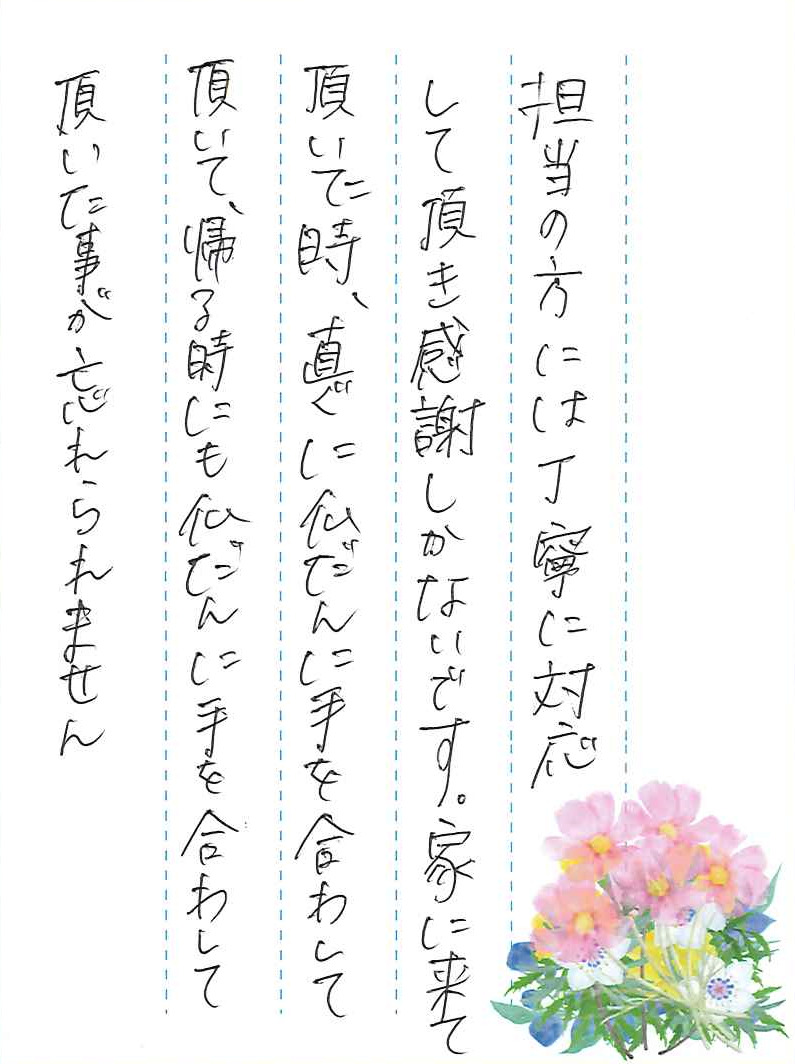 担当の方には丁寧に対応
して頂き感謝しかないです。家に来て
頂いてた時、直ぐに仏だんに手を合わして
頂いて、帰る時にも仏だんに手を合わして
頂いた事が忘れられません